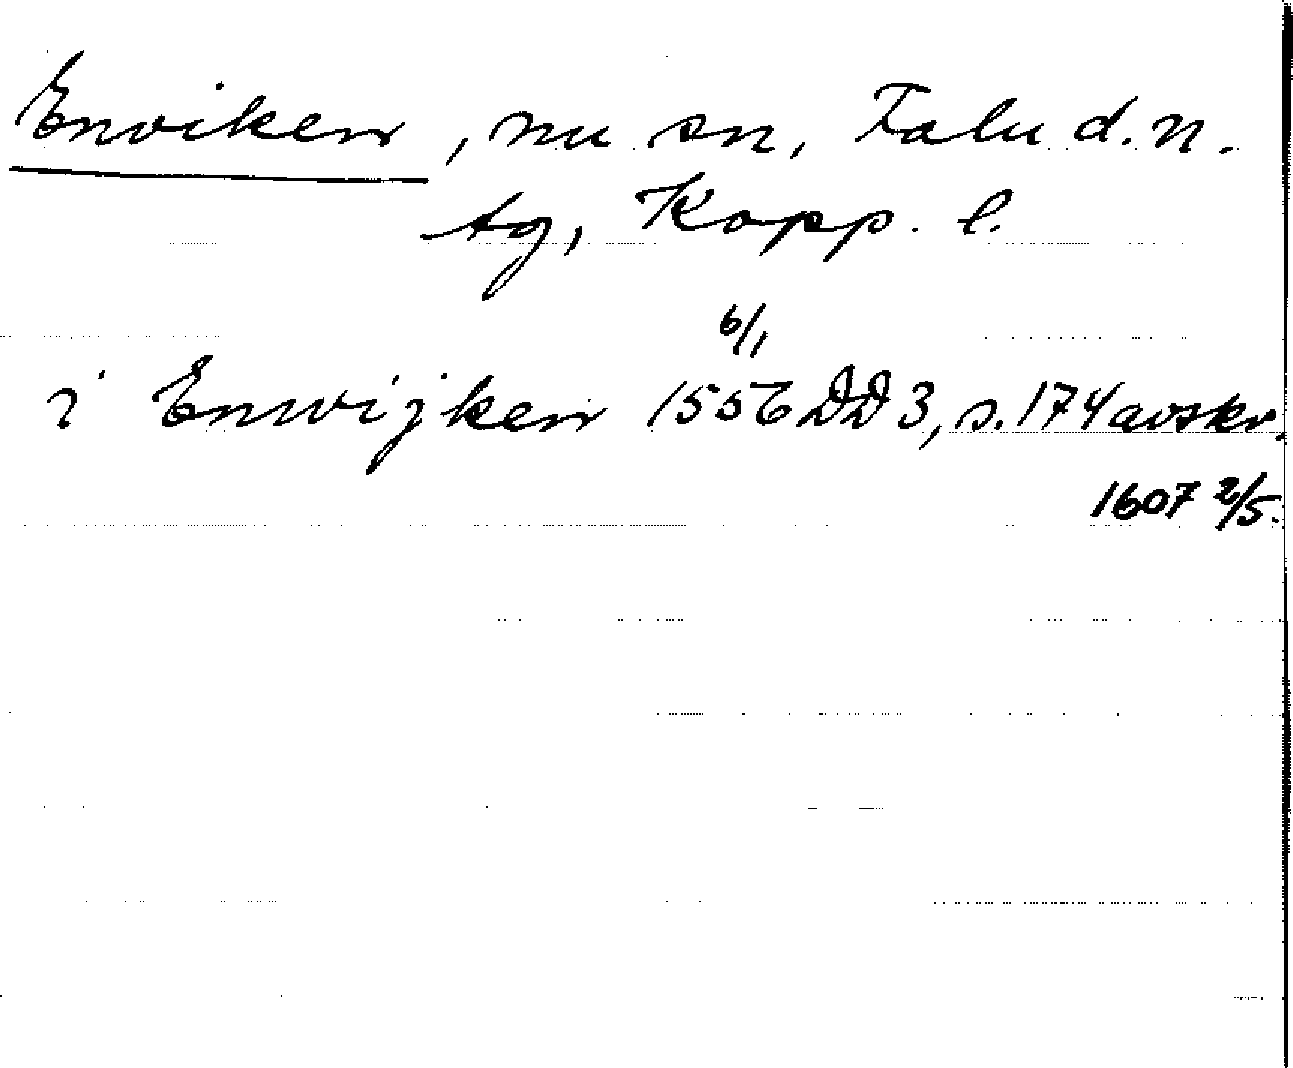 Enviken, nu sn, Falu d.n.
tg, Kopp. l.
6/1
i Enwijken 1556 DD 3, s. 174 avskr.
1607 2/5.